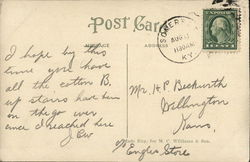 Post Card
SOMERSET
AUG
1130AM
KY.
I hope by this
time you have
all the cotton B.
up stairs have been
on the go ever
since I reached here
J. Ew
Mr. H. P. Beckwith
Wellington
Kans.
℅ Engles Store
for M. C. Williams & Son